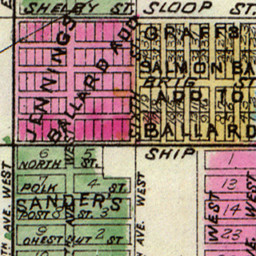 SHELBY ST. SLOOP ST.
JENNINGS
BALLARD ADD
GRAFFS
SALMON BAY
ADD TO
BALLARD
SHIP
6 5
NORTH ST.
7 4
POLK ST.
SANDER'S
8 3
POST ST.
9 2
CHESTNUT ST
AVE. WEST
AVE. WEST
WEST
WEST
1
13
14
23